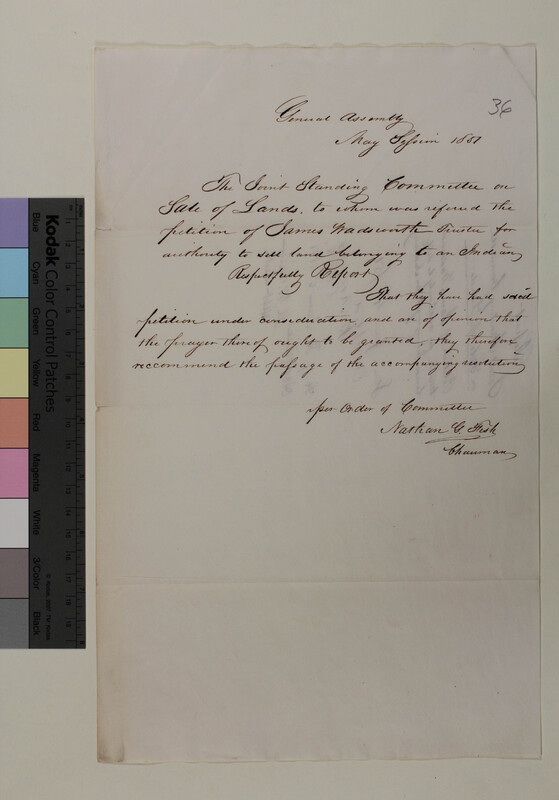 36
General Assembly
May Session 1857
The Joint Standing Committee on
Sale of Lands, to whom was refered the
petition of James Wadsworth Trustee for
authority to sell land belonging to an Indian
Respectfully Report
That they have had said
petition under consideration and are of opinion that
the prayer thereof ought to be granted, they therefore
reccommend the passage of the accompanying resolution
per Order of Committee
Nathan G. Fish
Chairman
Kodak Color Control Patches
Blue Cyan Green Yellow Red Magenta White 3/Color Black